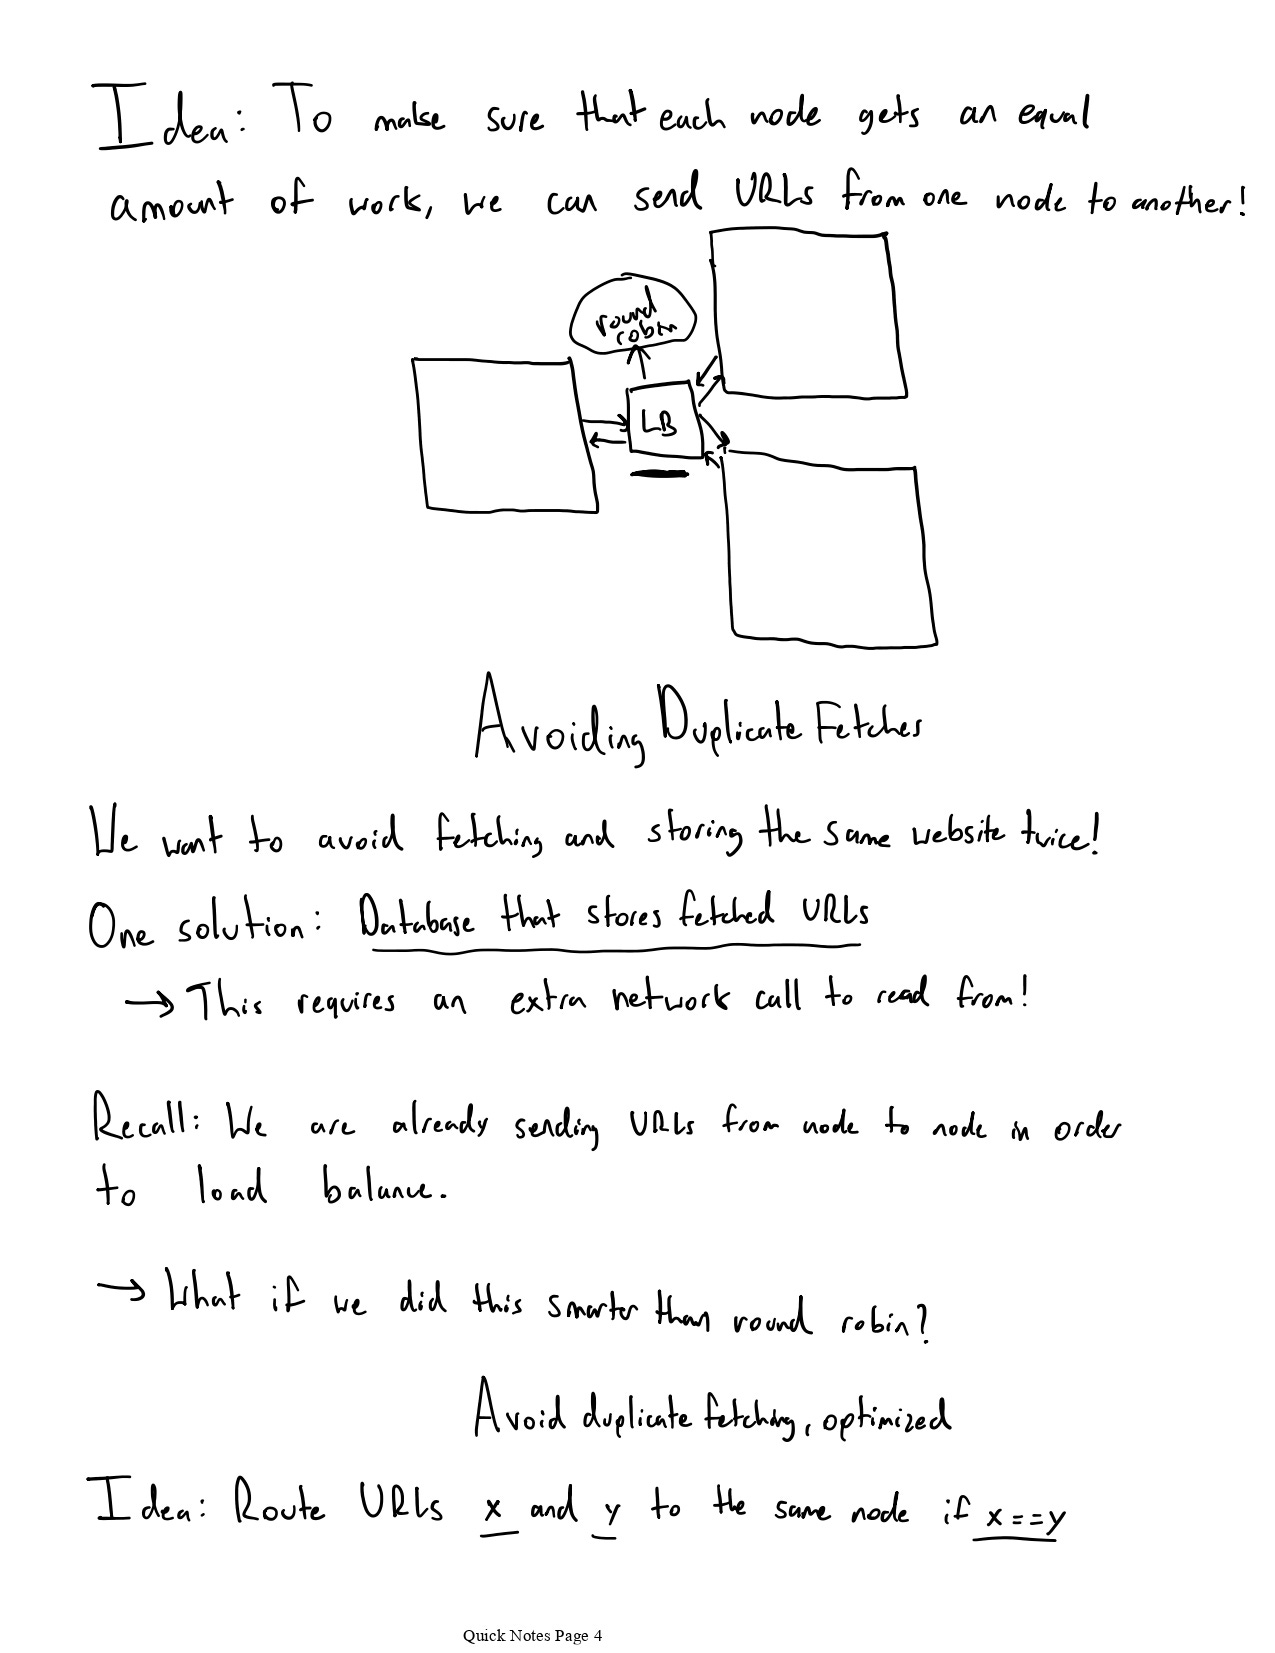 Idea: To make sure that each node gets an equal
amount of work, we can send URLs from one node to another!
round
robin
LB
Avoiding Duplicate Fetches
We want to avoid fetching and storing the same website twice!
One solution: Database that stores fetched URLs
→ This requires an extra network call to read from!
Recall: We are already sending URLs from node to node in order
to load balance.
→ What if we did this smarter than round robin?
Avoid duplicate fetching, optimized
Idea: Route URLs x and y to the same node if x==y
Quick Notes Page 4